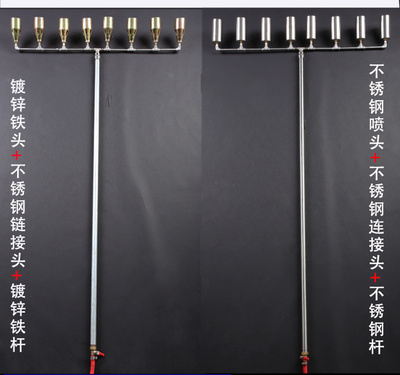 镀锌铁头+不锈钢链接头+镀锌铁杆
不锈钢喷头+不锈钢连接头+不锈钢杆